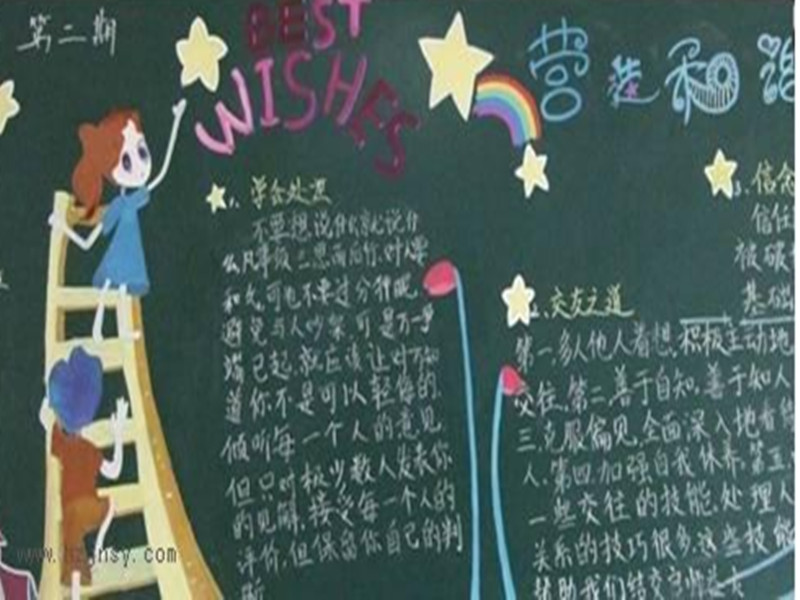 第二期
BEST
WISHES
营造和谐
1. 学会处
不要想说什么就说什
么凡事做三思而后行.对人要
和气.可也不要过分
避免与人吵架.可是万一
端已起.就应该让对方知
道你不是可以轻侮的.
倾听每一个人的意见
但只对极少数人发表你
的见解.接受每一个人的
评价.但保留你自己的判
断
2. 交友之道
第一.多人他人着想.积极主动地
交往.第二.善于自知.善于知人
三.克服偏见.全面深入地看
人.第四.加强自我休养.第五.
一些交往的技能.处理人
关系的技巧很多.这些技能
帮助我们结交
3. 信念
信任
被
基础